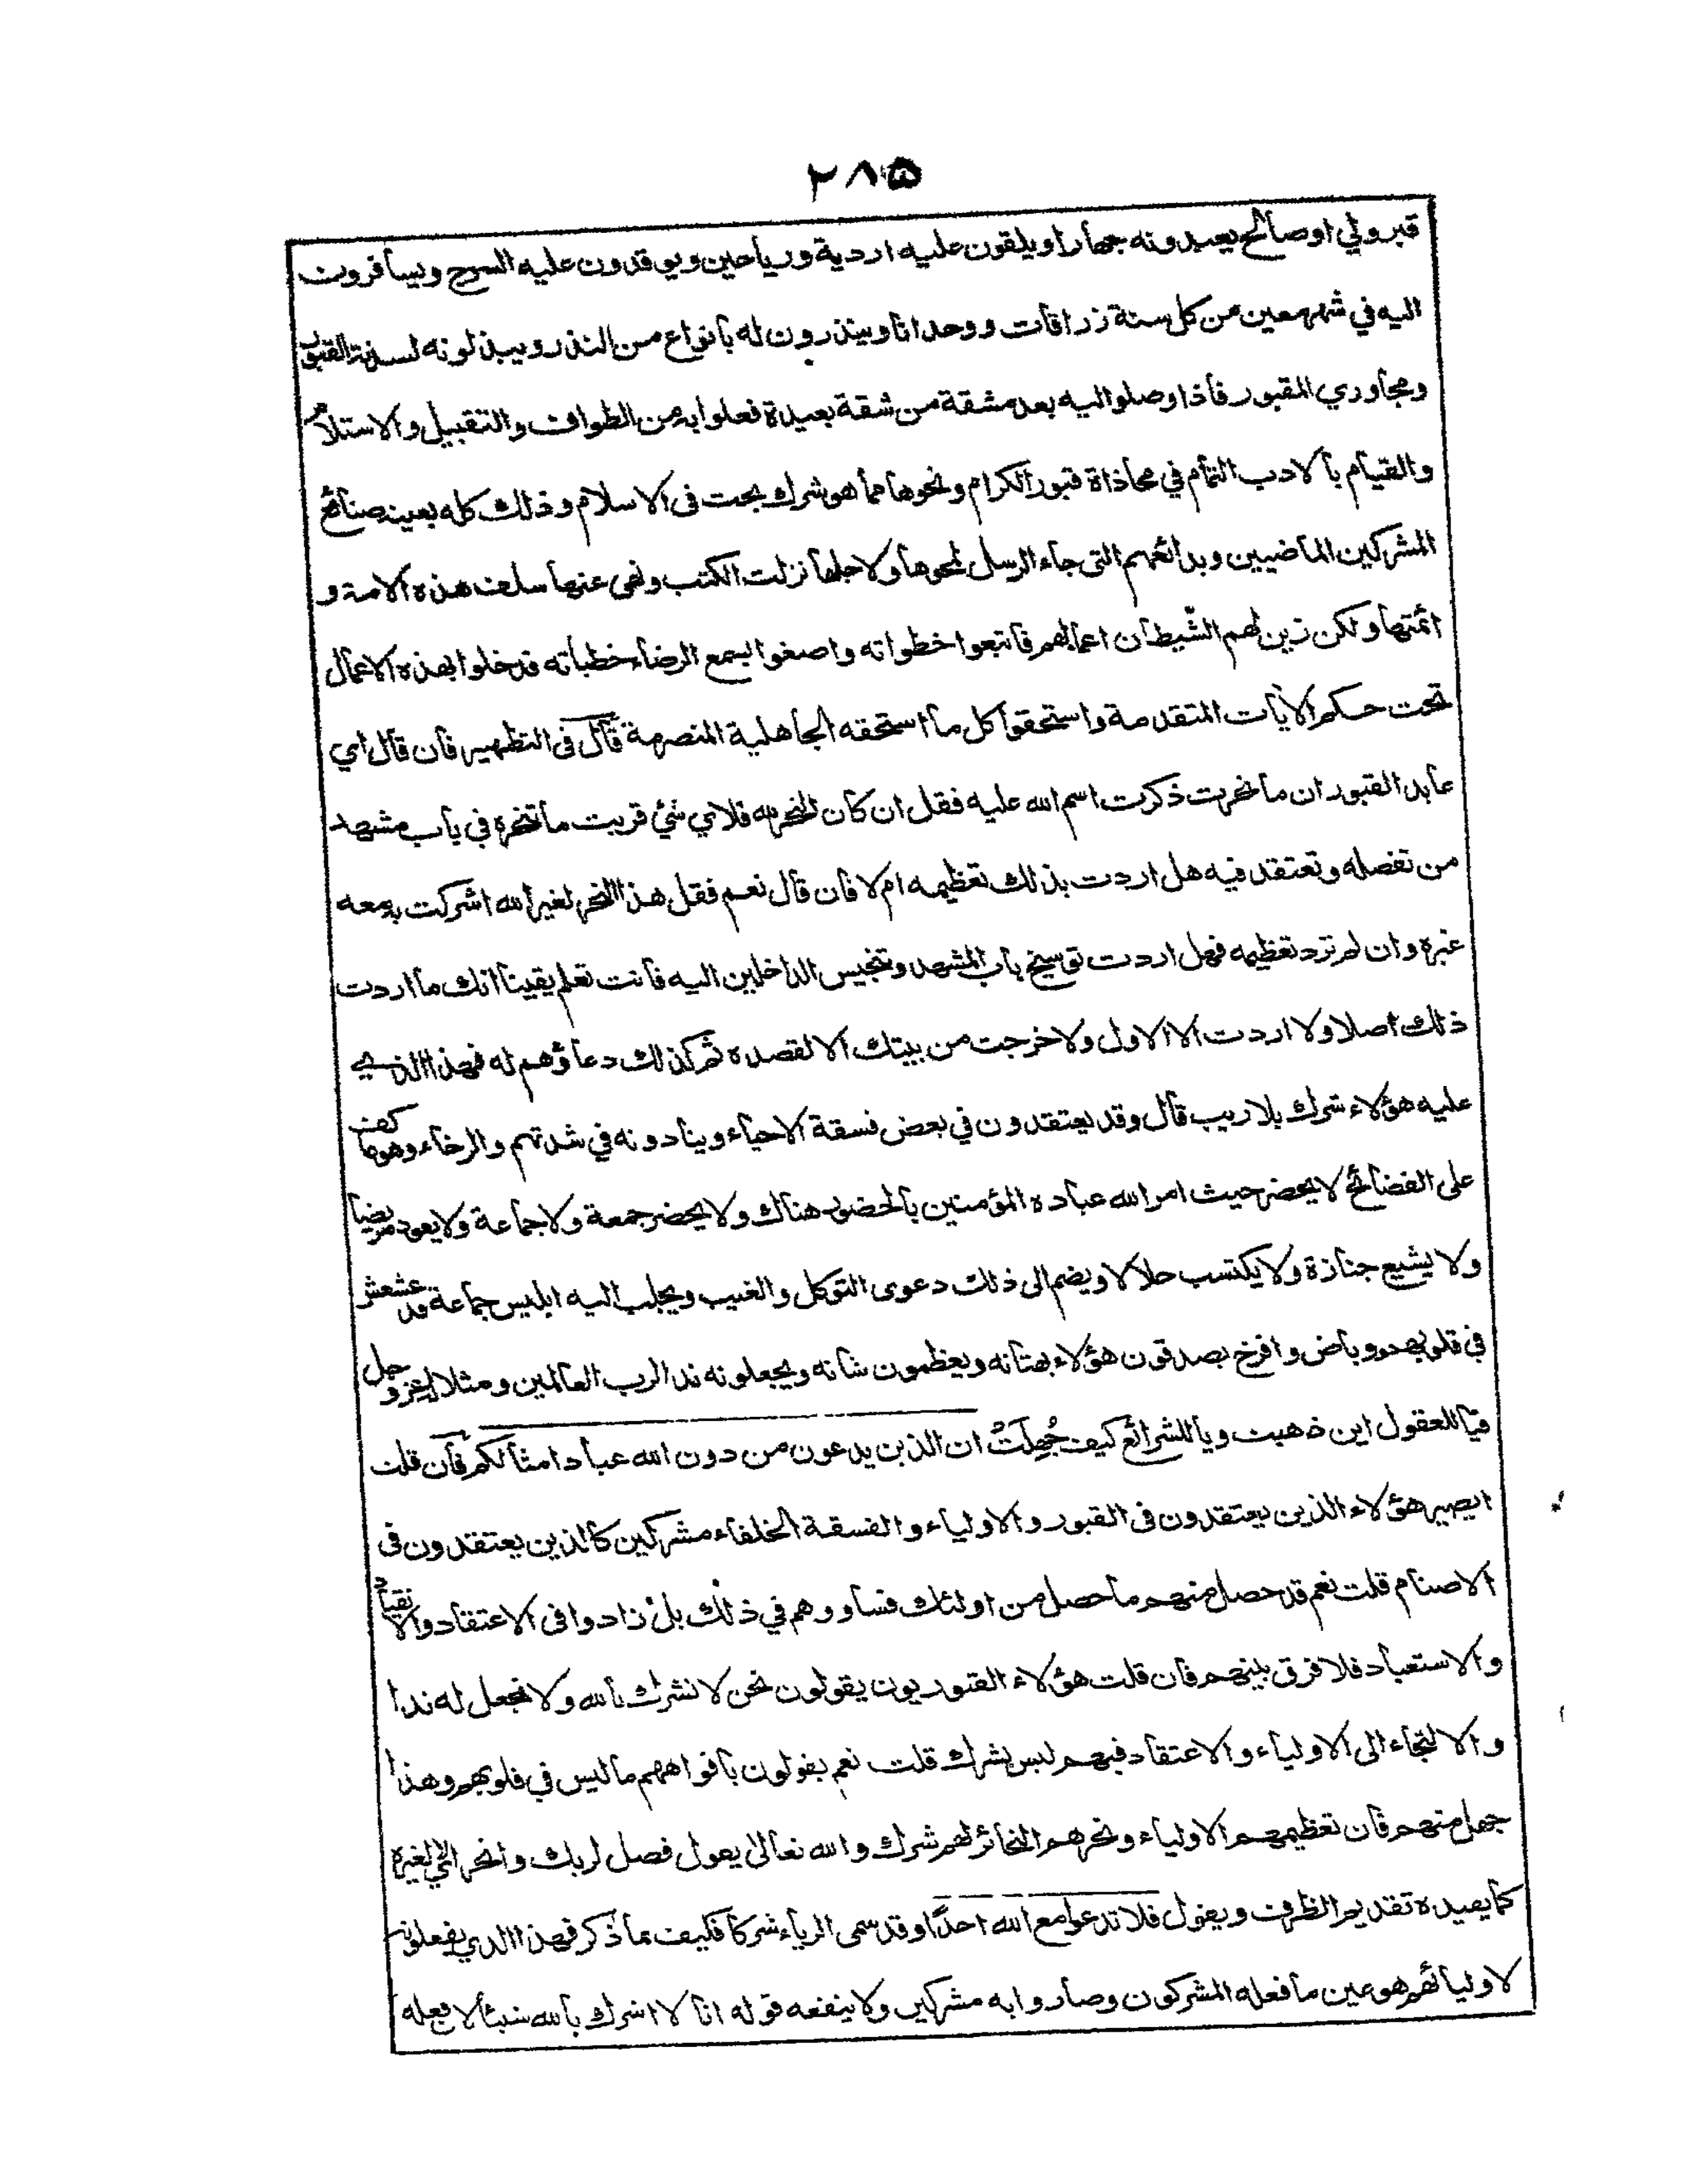 ٢٨٥
قبر ولي او صالح يعبدونه جهارا ويلقون عليه اردية ورياحين ويوقدون عليه السرج ويسافرون
اليه في شهر معين من كل سنة زرافات ووحدانا وينذرون له بانواع من النذر ويبذلونه لسدنة القبور
ومجاوري المقبور فاذا وصلوا اليه بعد مشقة من شقة بعيدة فعلوا به من الطواف والتقبيل والاستلام
والقيام بالادب التام في محاذاة قبور الكرام ونحوها مما هو شرك بحت في الاسلام وذلك كله بعينه صنائع
المشركين الماضيين وبدائعهم التي جاء الرسل لمحوها ولاجلها نزلت الكتب ونهى عنها سلف هذه الامة و
ائمتها ولكن زين لهم الشيطان اعمالهم فاتبعوا خطواته واصغوا بسمع الرضاء خطباته فدخلوا بهذه الاعمال
تحت حكم الآيات المتقدمة واستحقوا كل ما استحقه الجاهلية المنصرمة قال في التطهير فان قال اي
عابد القبور ان ما نحرت ذكرت اسم الله عليه فقل ان كان النحر لله فلاي شئ قربت ما تنحره في باب مشهد
من تفضله وتعتقد فيه هل اردت بذلك تعظيمه ام لا فان قال نعم فقل هذا النحر لغير الله اشركت به معه
غيره وان لم ترد تعظيمه فهل اردت توسيخ باب المشهد وتنجيس الداخلين اليه فانت تعلم يقينا انك ما اردت
ذلك اصلا ولا اردت الا الاول ولا خرجت من بيتك الا لقصده ثم كذلك دعاؤهم له فهذا الذي
عليه هؤلاء شرك بلا ريب قال وقد يعتقدون في بعض فسقة الاحياء وينادونه في شدتهم والرخاء وهو عاكف
على الفضائح لا يحضر حيث امر الله عباده المؤمنين بالحضور هناك ولا يحضر جمعة ولا جماعة ولا يعود مريضا
ولا يشيع جنازة ولا يكتسب حلالا ويضم الى ذلك دعوى التوكل والغيب ويجلب اليه ابليس جماعة قد عشعش
في قلوبهم وباض وافرخ يصدقون هؤلاء بهتانه ويعظمون شانه ويجعلونه ندا لرب العالمين ومثلا له عز وجل
فيا للعقول اين ذهبت ويا للشرائع كيف جُهِلَتْ ان الذين يدعون من دون الله عبادا امثالكم فان قلت
ايصير هؤلاء الذين يعتقدون في القبور والاولياء والفسقة الخلفاء مشركين كالذين يعتقدون في
الاصنام قلت نعم قد حصل منهم ما حصل من اولئك فساووهم في ذلك بل زادوا في الاعتقاد والانقياد
والاستعباد فلا فرق بينهم فان قلت هؤلاء القبوريون يقولون نحن لا نشرك بالله ولا نجعل له ندا
والالتجاء الى الاولياء والاعتقاد فيهم ليس بشرك قلت نعم يقولون بافواههم ما ليس في قلوبهم وهذا
جهل منهم فان تعظيمهم الاولياء ونحرهم النحائر لهم شرك والله تعالى يقول فصل لربك وانحر اي لا لغيره
كما يفيده تقديم الظرف ويقول فلا تدعوا مع الله احدًا وقد سمى الرياء شركا فكيف بما ذكر فهذا الذي يفعلونه
لاوليائهم هو عين ما فعله المشركون وصاروا به مشركين ولا ينفعه قوله انا لا اشرك بالله شيئا لان فعله